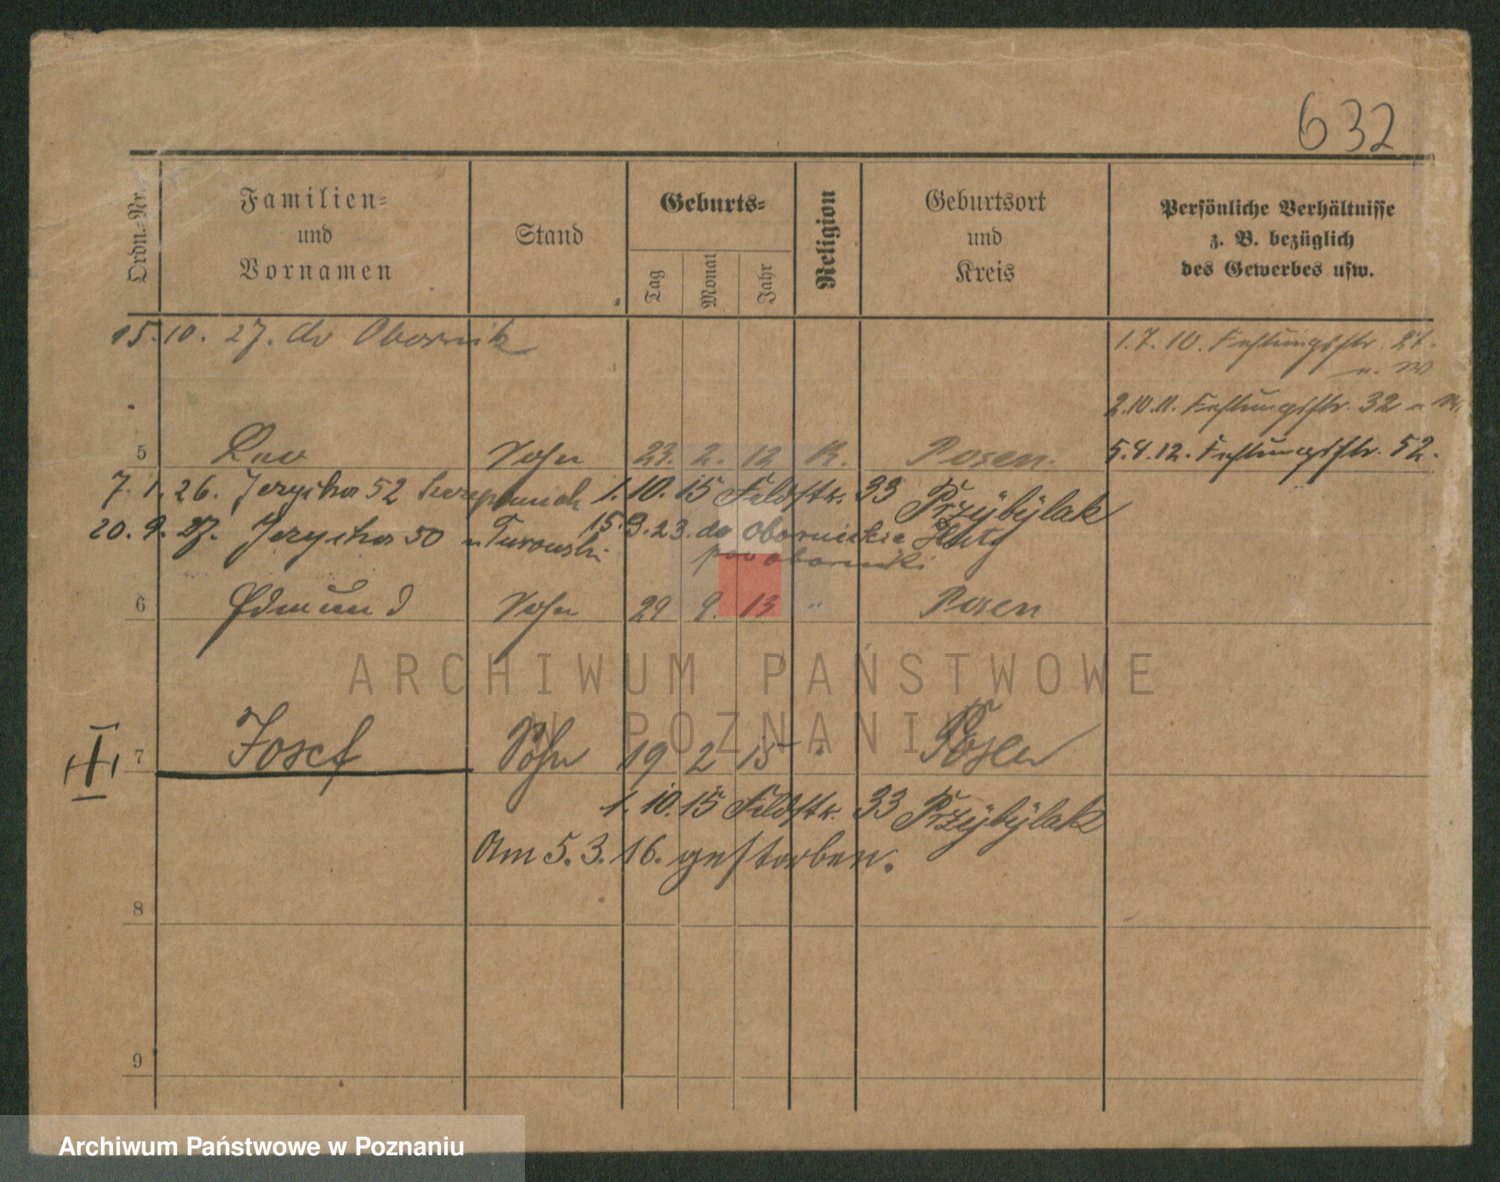 632
Ordn.-Nr.
Familien-
und
Vornamen
Stand
Geburts-
Tag
Monat
Jahr
Religion
Geburtsort
und
Kreis
Persönliche Verhältnisse
z. B. bezüglich
des Gewerbes usw.
15.10. 27. do Obornik
1.7.10. Festungsstr. 27.
2.10.11. Festungsstr. 32
5 Leo Sohn 23. 2. 12 K. Posen. 5.4.12. Festungsstr. 52.
7.1.26. Jerycka 52 1.10.15 Feldstr. 33 Przybylak
20.9.27. Jerycka 50 u Turowski 15.9.23. do Obornickie Huty
pow obornicki
6 Edmund Sohn 29 9. 13 " Posen
ARCHIWUM PAŃSTWOWE
W POZNANIU
7 Josef Sohn 19 2 15 " Posen
1.10.15 Feldstr. 33 Przybylak
Am 5.3.16. gestorben.
8
9
Archiwum Państwowe w Poznaniu